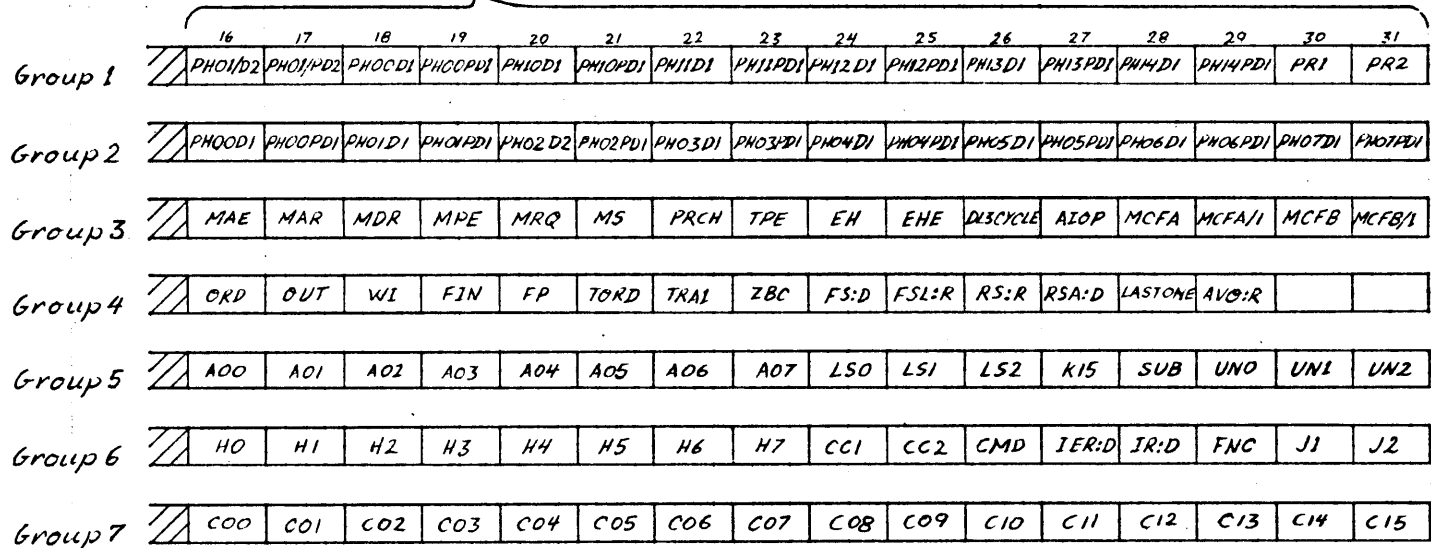 16 17 18 19 20 21 22 23 24 25 26 27 28 29 30 31
Group 1 PH01/D2 PH01/PD2 PH0CD1 PH0CPD1 PH10D1 PH10PD1 PH11D1 PH11PD1 PH12D1 PH12PD1 PH13D1 PH13PD1 PH14D1 PH14PD1 PR1 PR2
Group 2 PH00D1 PH00PD1 PH01D1 PH01PD1 PH02D2 PH02PD1 PH03D1 PH03PD1 PH04D1 PH04PD1 PH05D1 PH05PD1 PH06D1 PH06PD1 PH07D1 PH07PD1
Group 3 MAE MAR MDR MPE MRQ MS PRCH TPE EH EHE DL3CYCLE AIOP MCFA MCFA/1 MCFB MCFB/1
Group 4 ORD OUT WI FIN FP TORD TRA1 ZBC FS:D FSL:R RS:R RSA:D LASTONE AVO:R
Group 5 A00 A01 A02 A03 A04 A05 A06 A07 LS0 LS1 LS2 K15 SUB UN0 UN1 UN2
Group 6 H0 H1 H2 H3 H4 H5 H6 H7 CC1 CC2 CMD IER:D IR:D FNC J1 J2
Group 7 C00 C01 C02 C03 C04 C05 C06 C07 C08 C09 C10 C11 C12 C13 C14 C15